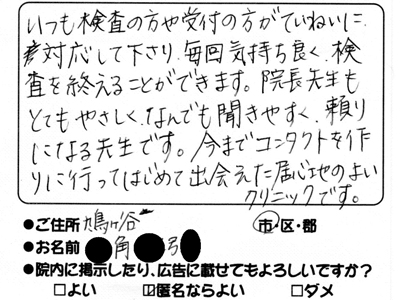 いつも検査の方や受付の方がていねいに
対応して下さり、毎回気持ち良く、検
査を終えることができます。院長先生も
とてもやさしく、なんでも聞きやすく、頼り
になる先生です。今までコンタクトを作
りに行ってはじめて出会えた居心地のよい
クリニックです。
●ご住所 鳩ヶ谷 市・区・郡
●お名前 角 弓
●院内に掲示したり、広告に載せてもよろしいですか?
□よい ☑匿名ならよい □ダメ